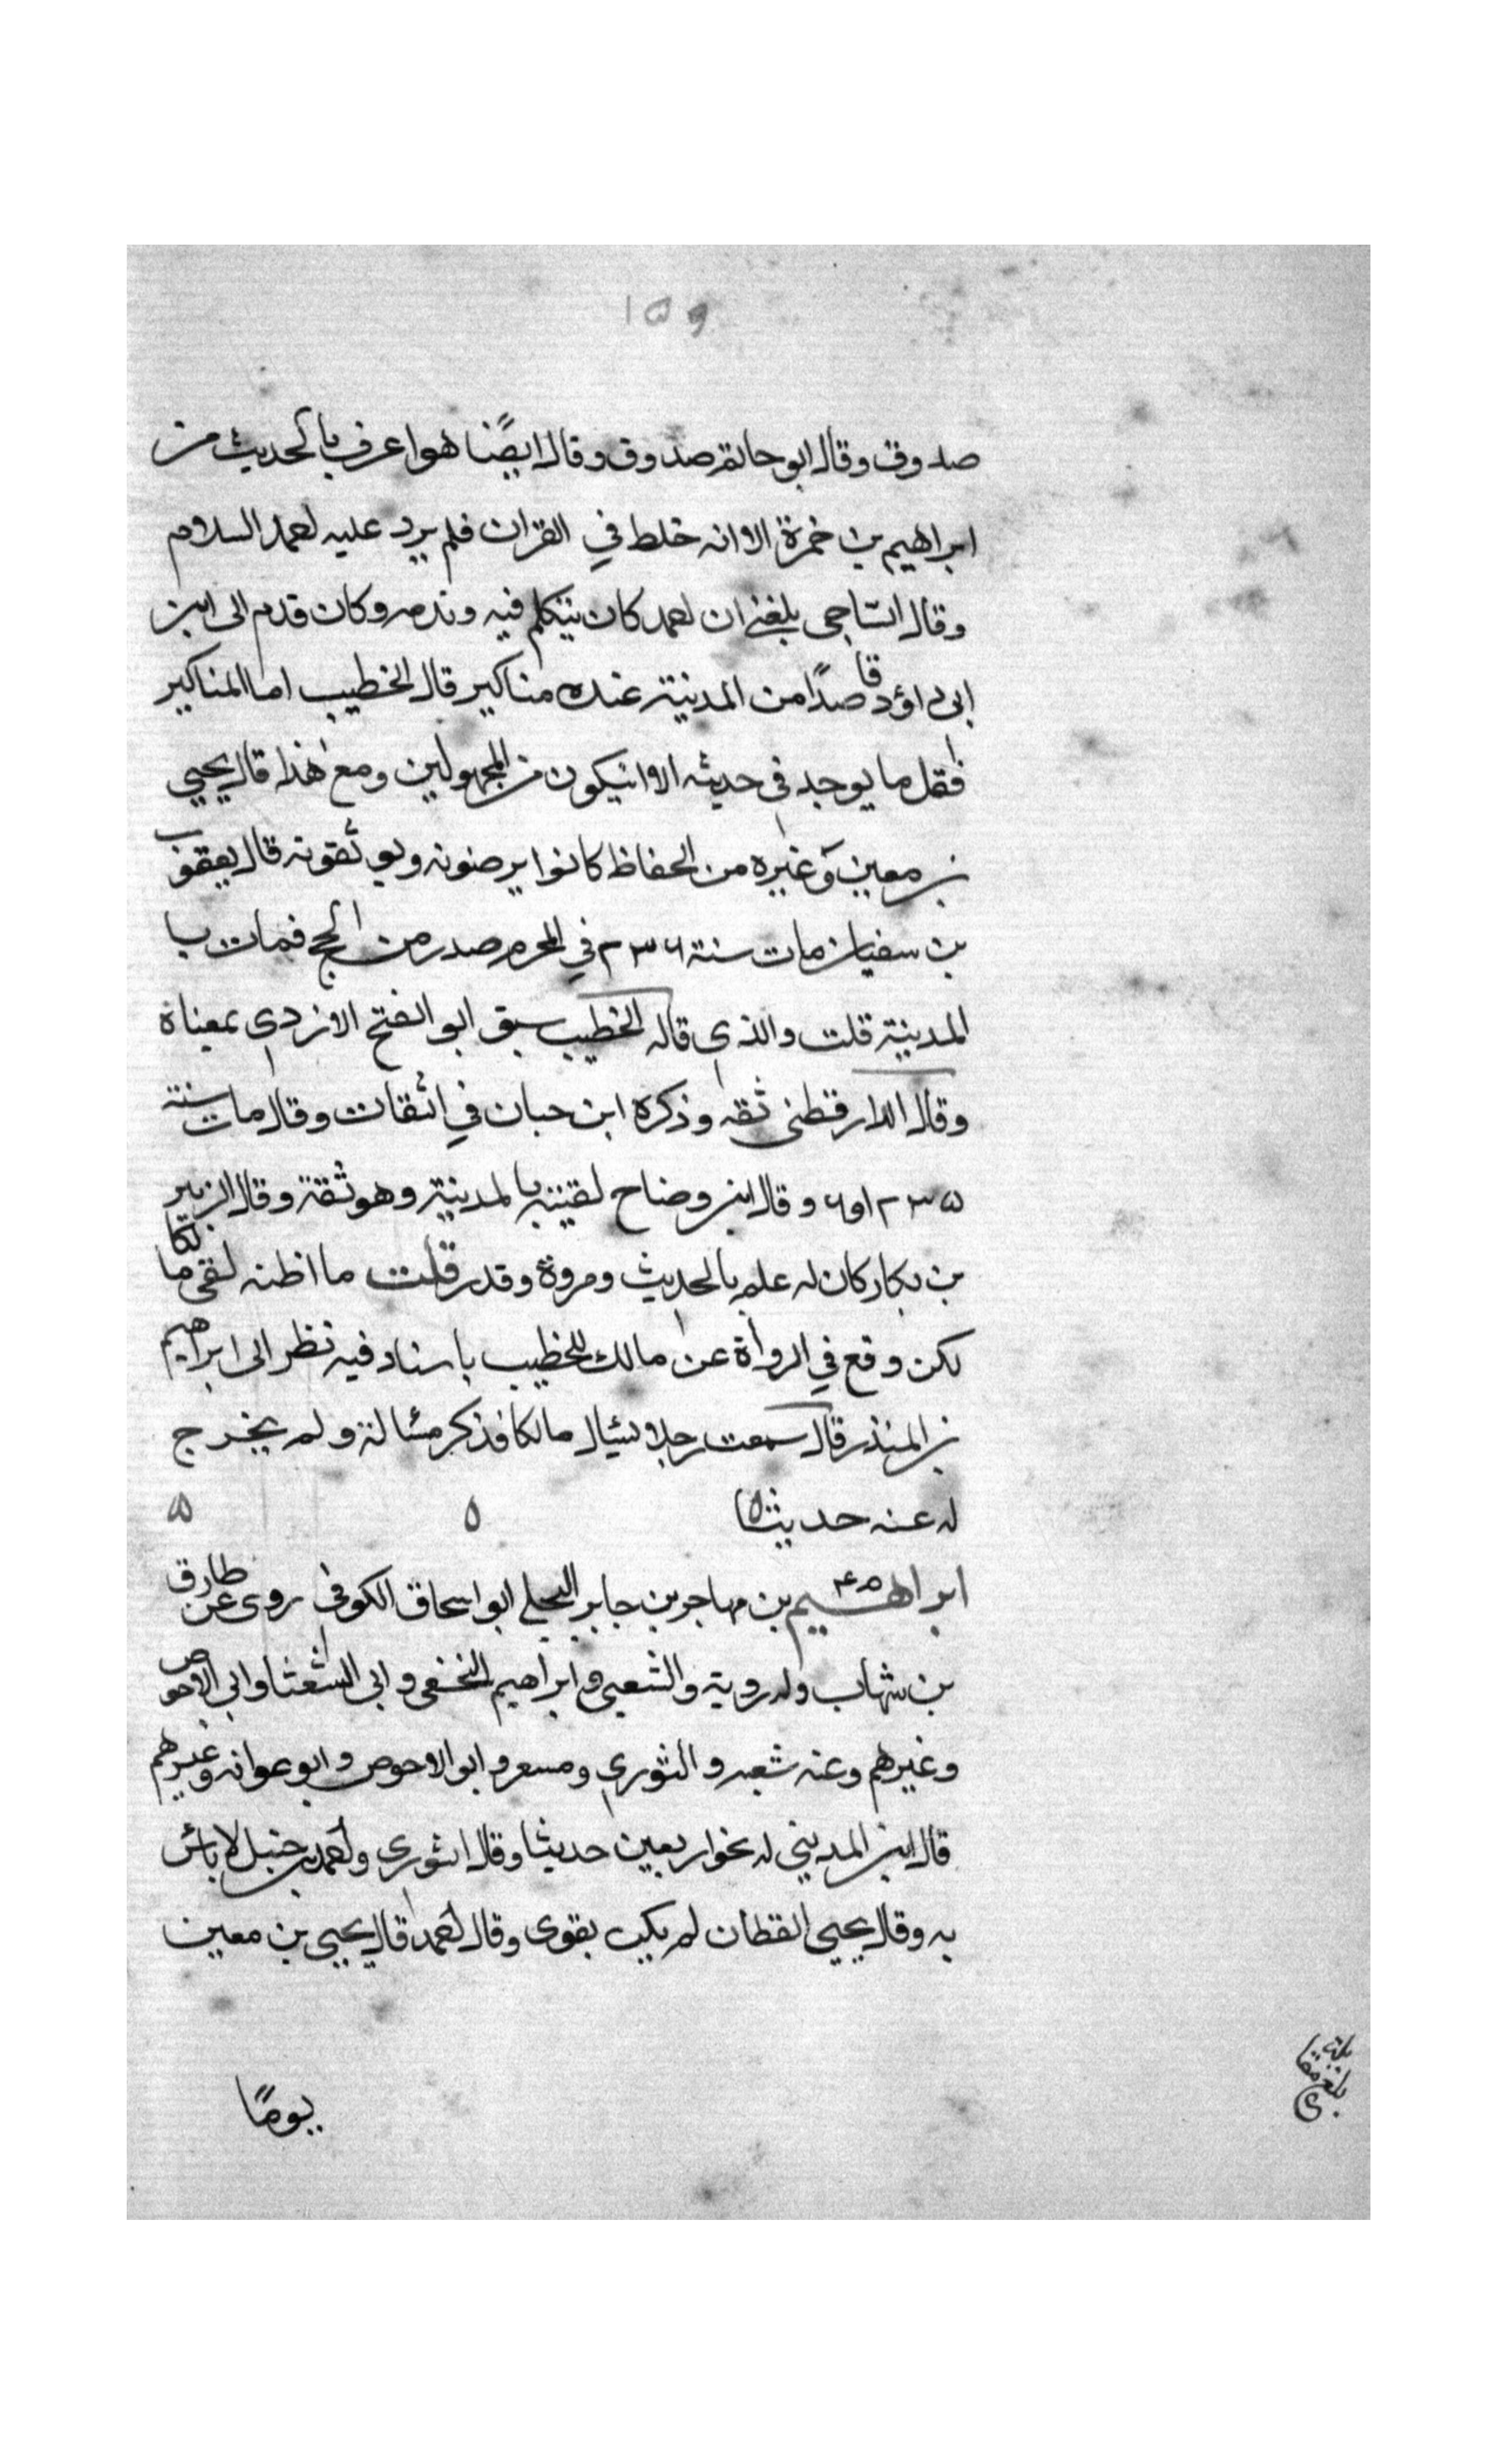 ١٥٩
صدوق وقال ابو حاتم صدوق وقال ايضًا هو اعرف بالحديث من
ابراهيم بن حمزة الا انه خلط في القران فلم يرد عليه احمد السلام
وقال الساجي بلغني ان احمد كان يتكلم فيه ويذمه وكان قدم الى ابن
ابي داؤد قاصدًا من المدينة عنده مناكير قال الخطيب اما المناكير
فقل ما يوجد في حديثه الا ان يكون من المجهولين ومع هذا قال يحيي
بن معين وغيره من الحفاظ كانوا يرضونه ويوثقونه قال يعقوب
بن سفيان مات سنة ٢٣٦ في المحرم صدر من الحج فمات با
المدينة قلت والذي قاله الخطيب سبق ابو الفتح الازدي بمعناة
وقال الدارقطني ثقه وذكره ابن حبان في الثقات وقال مات سنة
٢٣٥ او ٦ وقال ابن وضاح لقيته بالمدينة وهو ثقة وقال الزبير
بن بكار كان له علم بالحديث ومروة وقدر قلت ما اظنه لقى مالكا
لكن وقع في الرواة عن مالك للخطيب باسناد فيه نظر الى ابراهيم
بن المنذر قال سمعت رجلا يسئال مالكا فذكر مسئالة ولم يخرج
له عنه حديثا ٥ ٥
ابراهيم بن مهاجر بن جابر البجلي ابو اسحاق الكوفي روى عن طارق
بن شهاب وله روية والشعبي و ابراهيم النخعي و ابي الشعثا وابي الاحوص
وغيرهم وعنه شعبه و الثوري ومسعر و ابو الاحوص و ابو عوانه وغيرهم
قال ابن المديني له نحو اربعين حديثا وقال الثوري واحمد بن حنبل لا بأس
به وقال يحيى القطان لم يكن بقوى وقال احمد قال يحيى بن معين
يومًا